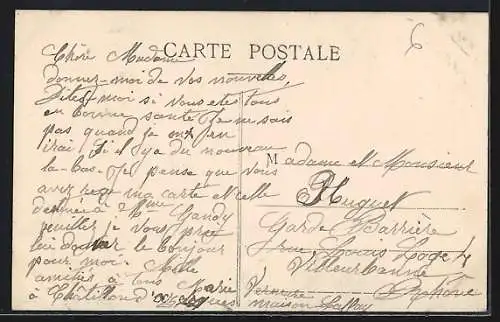 CARTE POSTALE
Chère Madame
donnez-moi de vos nouvelles,
Dites-moi si vous etes tous
en bonne santé Je ne sais
pas quand je m'en
irai Si il y a du nouveau
la-bas. Je pense que vous
avez reçu ma carte et celle
destinée à Mme Gandy
veuillez je vous prie
lui donner le bonjour
pour moi. Mille
amitiés à tous Marie
à Châtillon d'
Madame et Monsieur
Huguet
Garde Barrière
rue Louis
Villeurbanne
Rhône
maison